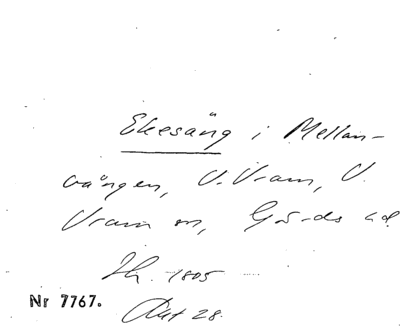 Ekesäng i Mellan-
vången, V. Vram, V.
Vram sn, Gärds hd.
1805
Nr 7767.
Akt 28.